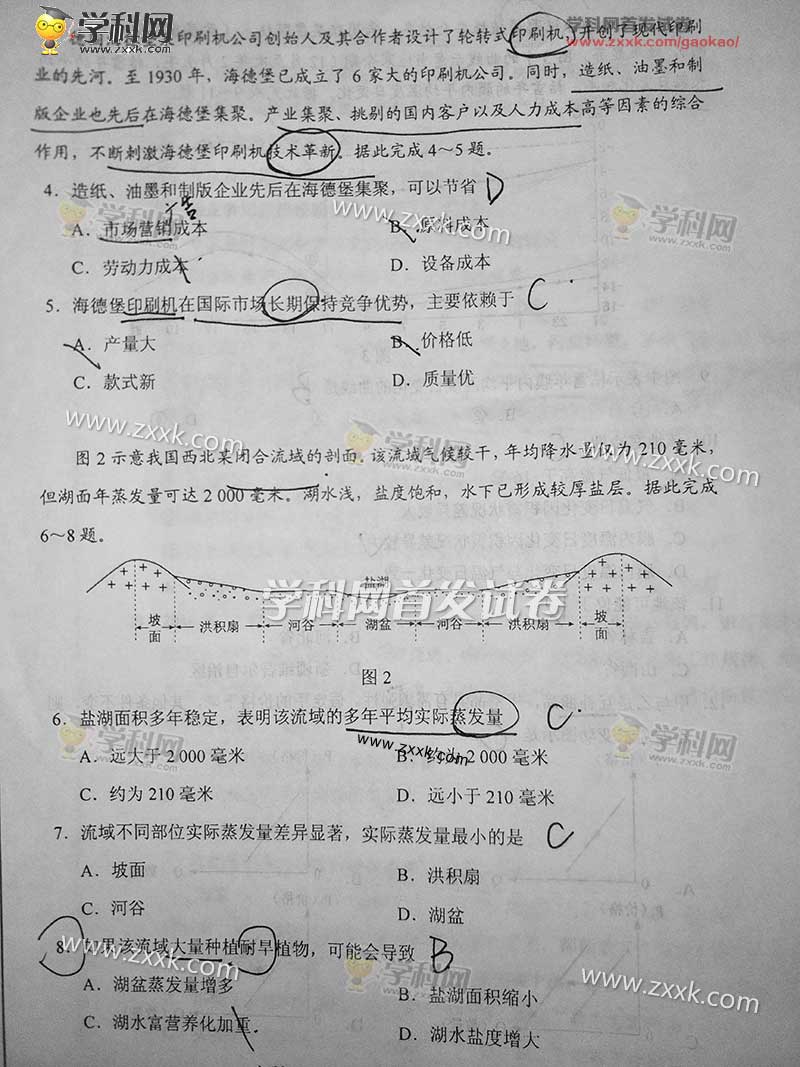 学科网首发试卷
学科网
www.zxxk.com/gaokao/
印刷机公司创始人及其合作者设计了轮转式印刷机,开创了现代印刷
业的先河。至 1930 年,海德堡已成立了 6 家大的印刷机公司。同时,造纸、油墨和制
版企业也先后在海德堡集聚。产业集聚、挑剔的国内客户以及人力成本高等因素的综合
作用,不断刺激海德堡印刷机技术革新。据此完成 4~5 题。
4. 造纸、油墨和制版企业先后在海德堡集聚,可以节省 D
广告
A. 市场营销成本 B. 原料成本
C. 劳动力成本 D. 设备成本
5. 海德堡印刷机在国际市场长期保持竞争优势,主要依赖于 C
A. 产量大 B. 价格低
C. 款式新 D. 质量优
图 2 示意我国西北某闭合流域的剖面。该流域气候较干,年均降水量仅为 210 毫米,
但湖面年蒸发量可达 2 000 毫米。湖水浅,盐度饱和,水下已形成较厚盐层。据此完成
6~8 题。
盐湖
学科网首发试卷
坡面 洪积扇 河谷 湖盆 河谷 洪积扇 坡面
图 2
6. 盐湖面积多年稳定,表明该流域的多年平均实际蒸发量 C
A. 远大于 2 000 毫米 B. 约为 2 000 毫米
C. 约为 210 毫米 D. 远小于 210 毫米
7. 流域不同部位实际蒸发量差异显著,实际蒸发量最小的是 C
A. 坡面 B. 洪积扇
C. 河谷 D. 湖盆
8. 如果该流域大量种植耐旱植物,可能会导致 B
A. 湖盆蒸发量增多 B. 盐湖面积缩小
C. 湖水富营养化加重 D. 湖水盐度增大
www.zxxk.com